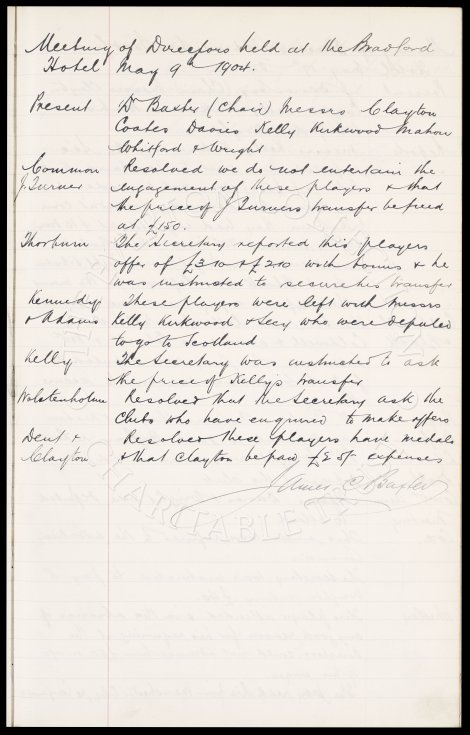 Meeting of Directors held at the Bradford
Hotel May 9th 1904.
Present Dr Baxter (Chair) Messrs Clayton
Coates Davies Kelly Kirkwood Mahon
Whitford & Wright
Common Resolved we do not entertain the
J Turner engagement of these players & that
the price of J Turners transfer be fixed
at £150.
Thorburn The Secretary reported this players
offer of £3 10 & £2 10 with bonus & he
was instructed to secure his transfer
Kennedy These players were left with Messrs
& Adams Kelly Kirkwood & Secy who were deputed
to go to Scotland
Kelly The Secretary was instructed to ask
the price of Kellys transfer
Wolstenholm Resolved that the Secretary ask the
Clubs who have enquired to make offers
Dent & Resolved these players have medals
Clayton & that Clayton be paid £2 expenses
James C Baxter
CHARITABLE T